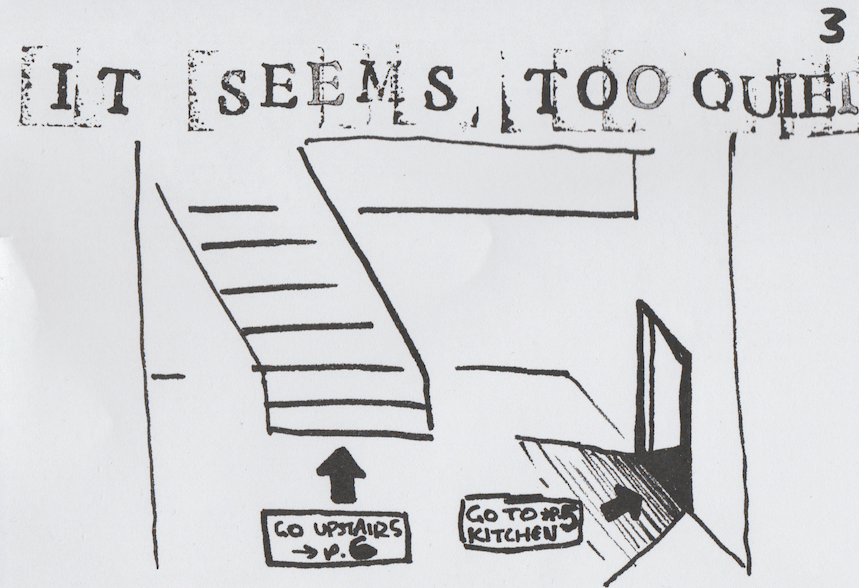 3
IT SEEMS TOO QUIET
GO UPSTAIRS
→ P. 6
GO TO P.5
KITCHEN